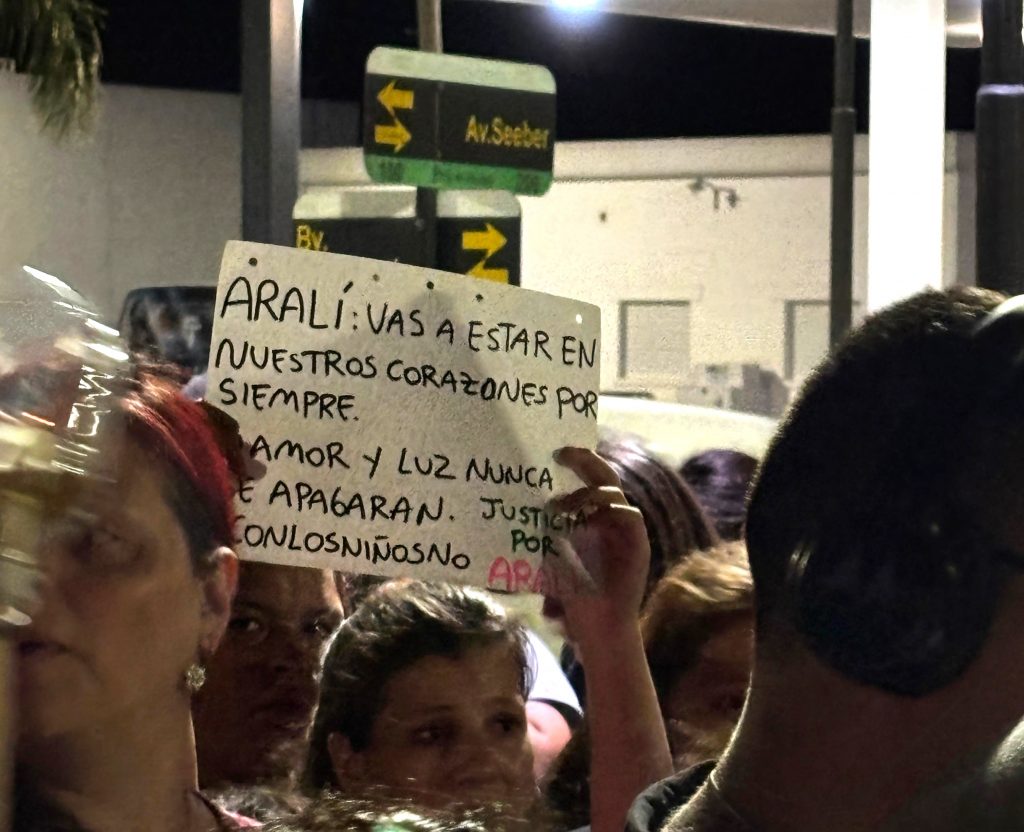 Av.Seeber
Bv.
ARALÍ: VAS A ESTAR EN
NUESTROS CORAZONES POR
SIEMPRE.
AMOR Y LUZ NUNCA
E APAGARAN. JUSTICIA
POR
CONLOSNIÑOSNO